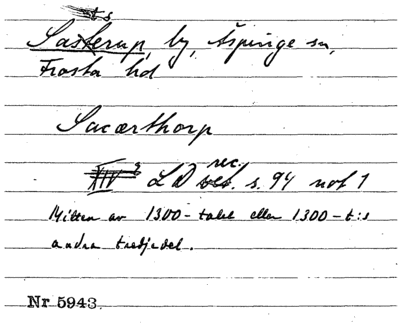 ts
Sasterup, by, Äspinge sn,
Frosta hd
Sacærthorp
rec.
XIV 2 LD s. 94 not 1
Mitten av 1300-talet eller 1300-t:s
andra tredjedel.
Nr 5943